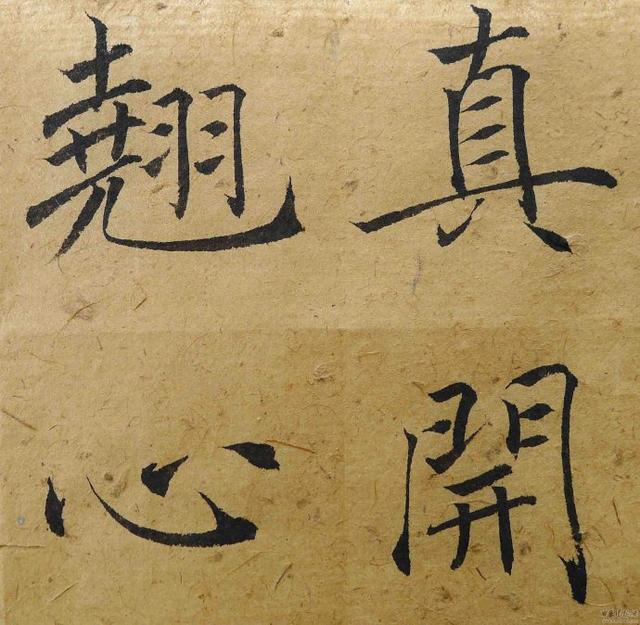 真開
翹心